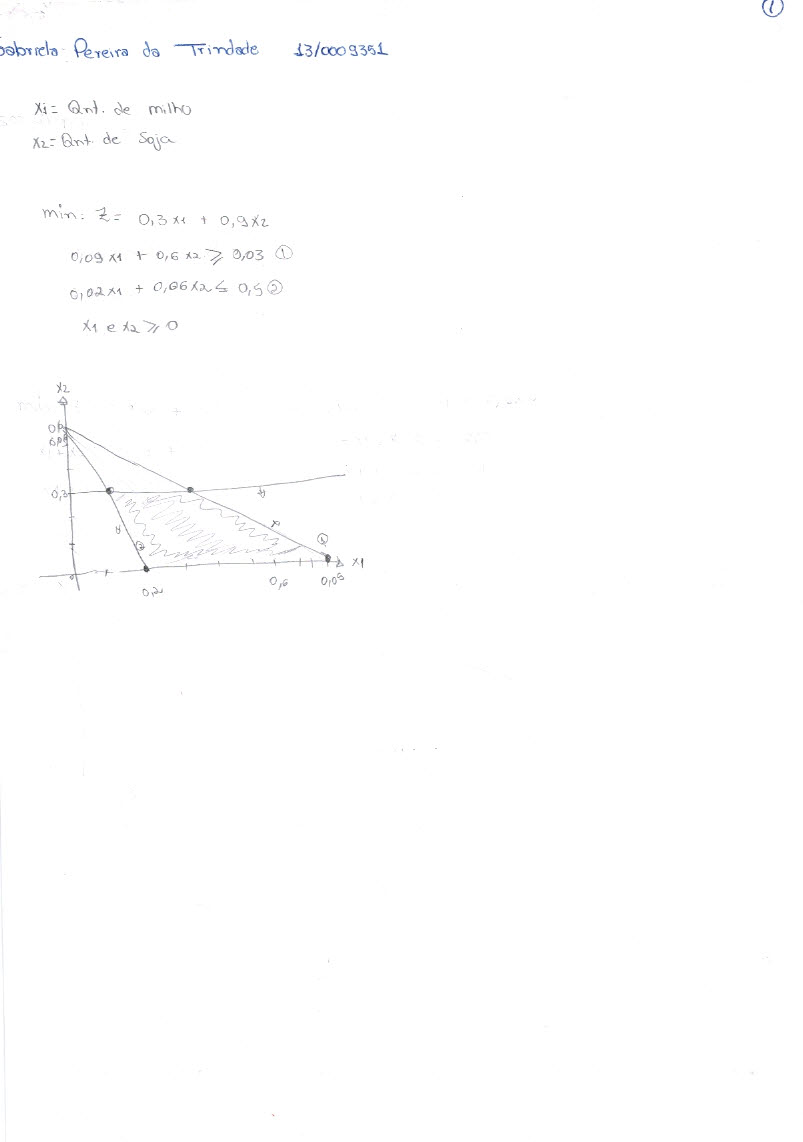 ①
Gabriela Pereira da Trindade 13/0009351
x1= Qnt. de milho
x2= Qnt. de Soja
min: Z= 0,3x1 + 0,9x2
0,09x1 + 0,6x2 ≥ 0,03 ①
0,02x1 + 0,06x2 ≤ 0,5 ②
x1 e x2 ≥ 0
x2
0,3
x1
0,2
0,6
0,09